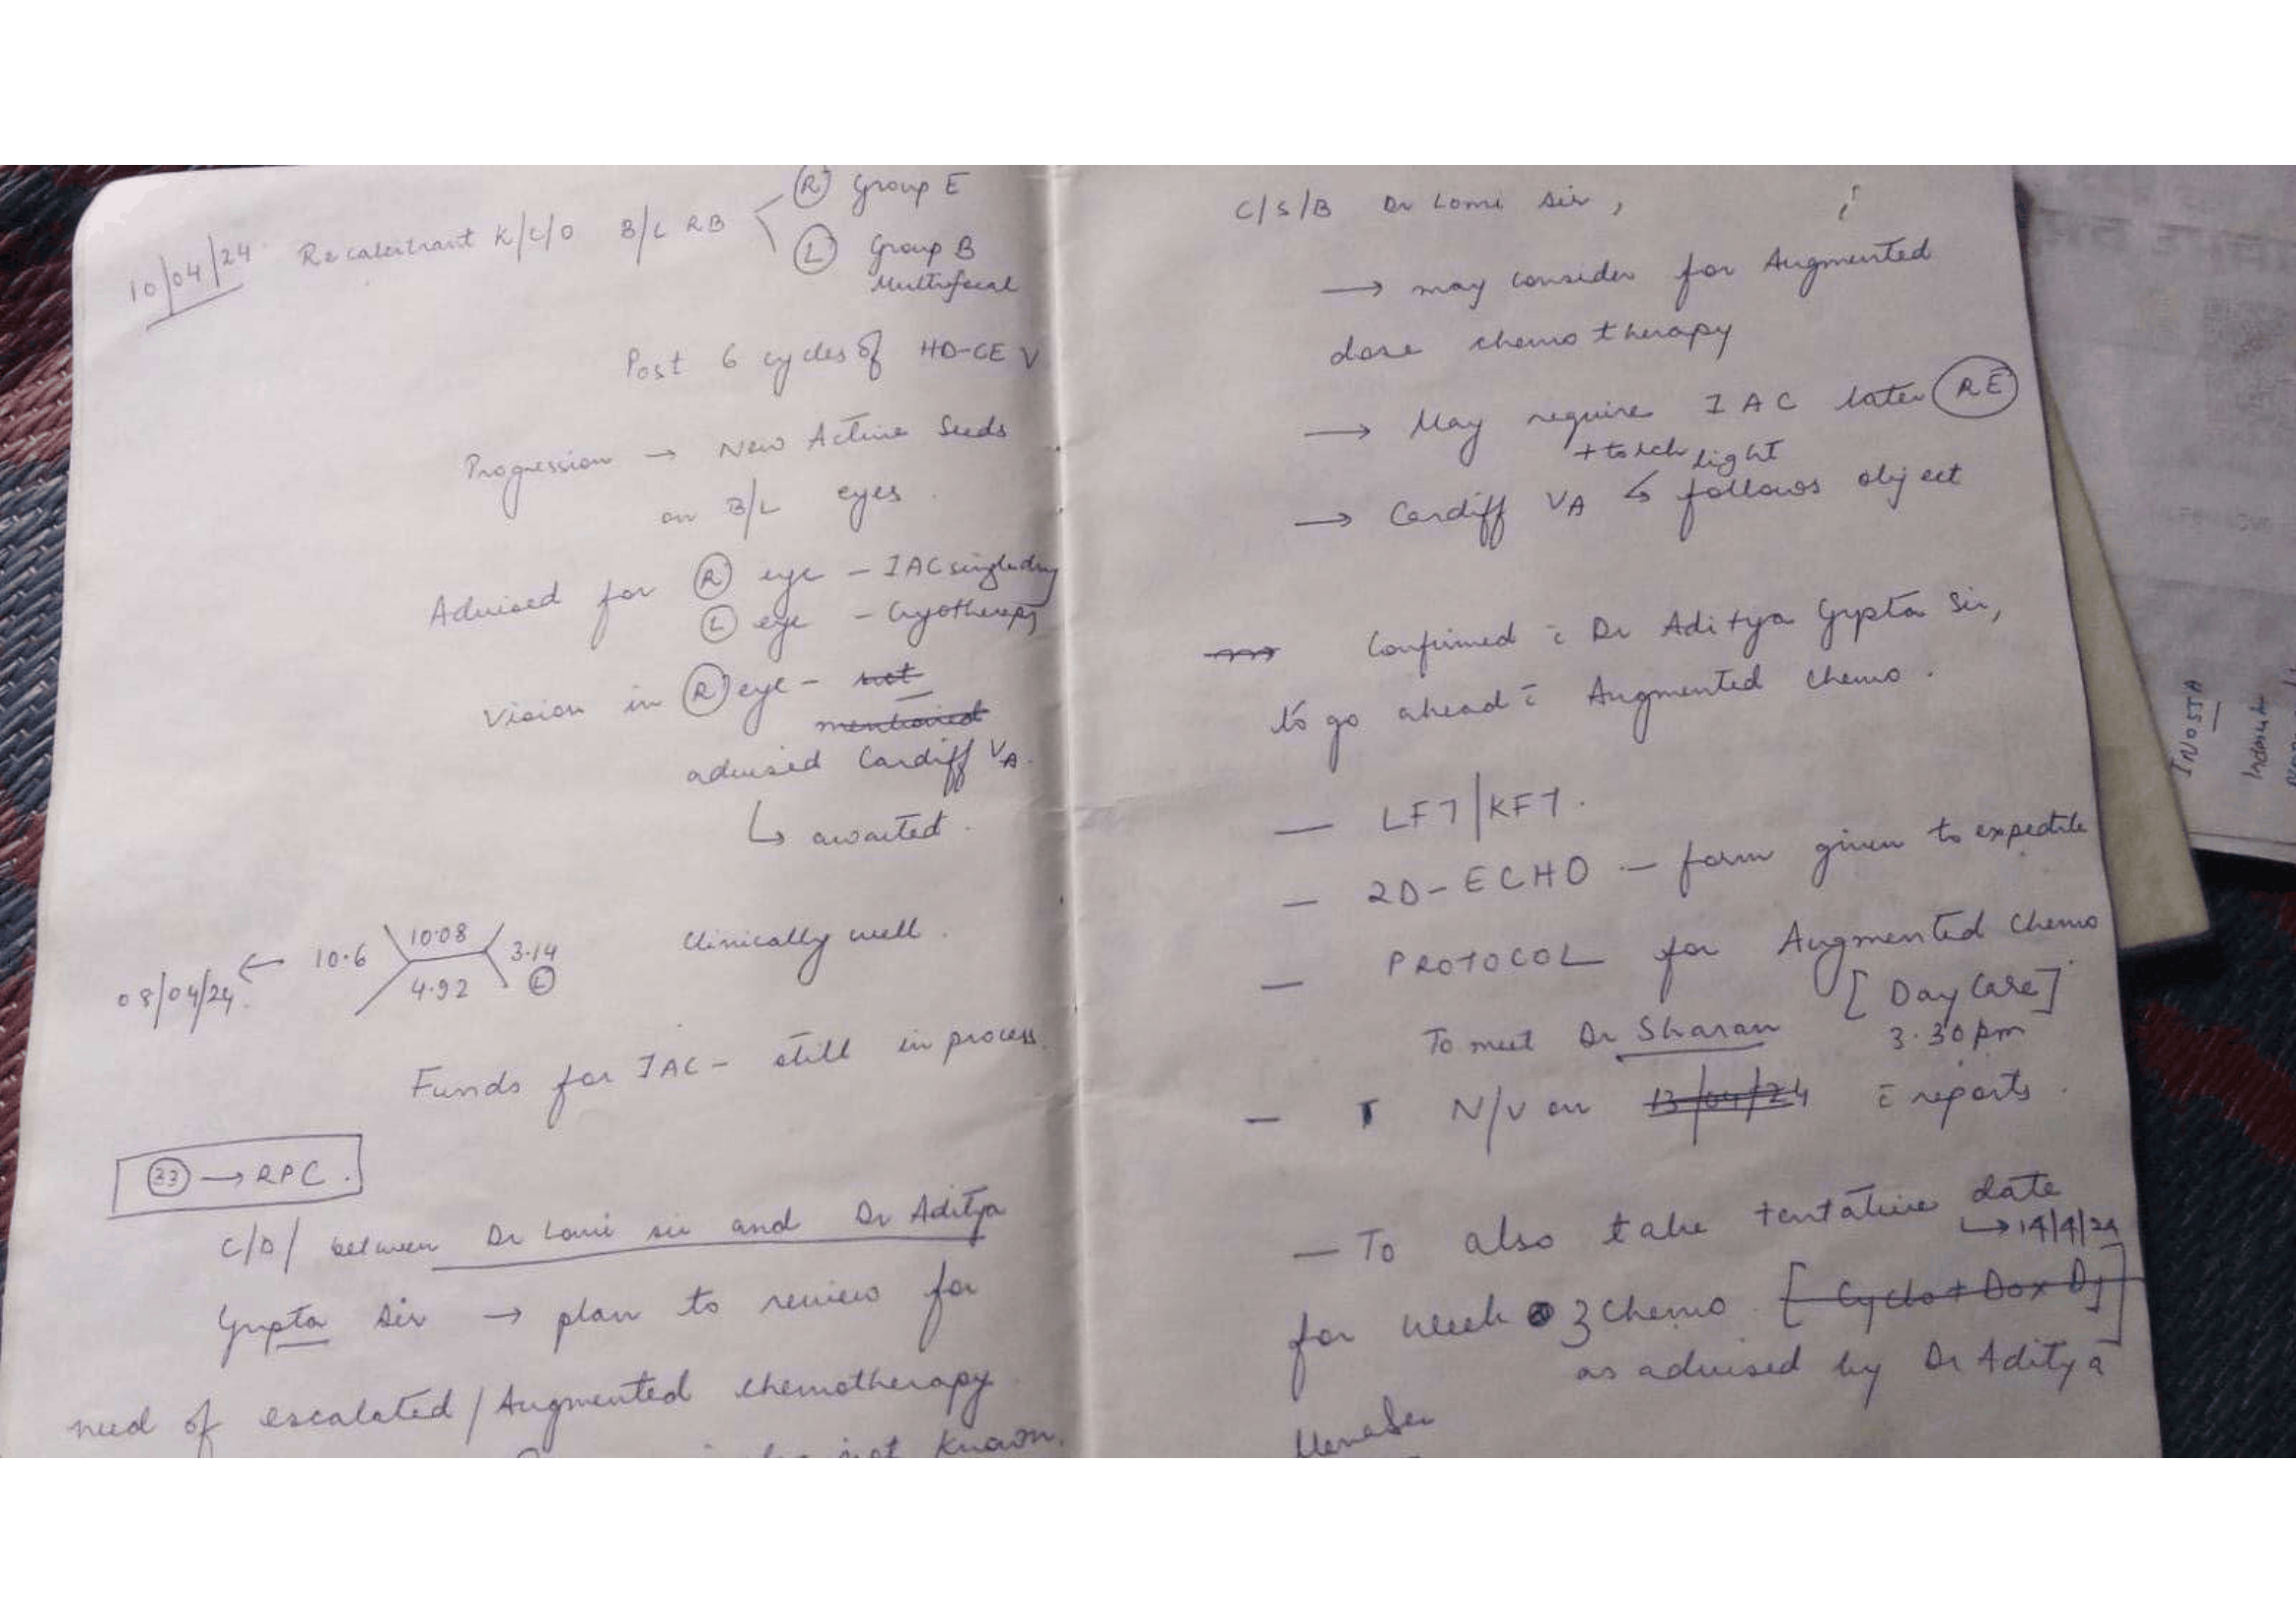 10/04/24 Recalcitrant K/C/O B/L RB
(R) Group E
(L) Group B
Multifocal
Post 6 cycles of HD-CEV
Progression → New Active Seeds
on B/L eyes.
Advised for (R) eye - IAC
(L) eye - Cryotherapy
Vision in (R) eye - not
mentioned
advised Cardiff VA.
↳ awaited.
08/04/24 ← 10.6 10.08 4.92 3.14 (L) Clinically well.
Funds for IAC - still in process.
(33) → RPC.
C/D/ between Dr Lomi sir and Dr Aditya
Gupta Sir → plan to review for
need of escalated/Augmented chemotherapy
not known.
C/S/B Dr Lomi Sir,
→ may consider for Augmented
dose chemotherapy
→ May require IAC later (RE)
+ torch light
→ Cardiff VA ↳ follows object
Confirmed c̄ Dr Aditya Gupta Sir,
to go ahead c̄ Augmented chemo.
— LFT/KFT.
— 2D-ECHO — form given to expedite
— PROTOCOL for Augmented Chemo
[Day Care]
To meet Dr Sharan 3.30pm
— N/V on 13/04/24 c̄ reports.
— To also take tentative date
↳ 14/4/24
for week 3 Chemo. [Cyclo + Dox D1]
as advised by Dr Aditya
INOSTA